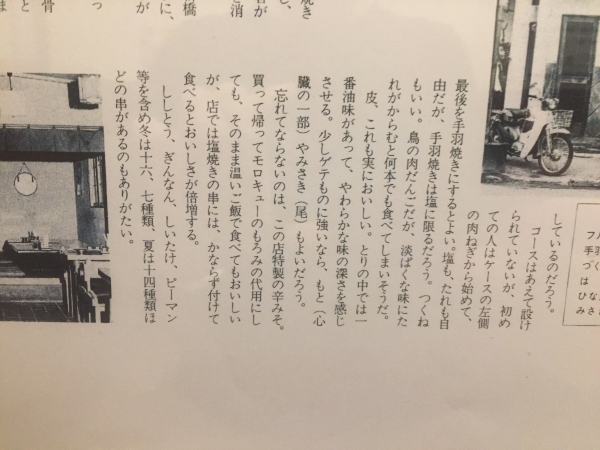 しているのだろう。
コースはあえて設け
られていないが、初め
ての人はケースの左側
の肉ねぎから始めて、
最後を手羽焼きにするとよい。塩も、たれも自
由だが、手羽焼きは塩に限るだろう。つくね
もいい。鳥の肉だんごだが、淡ぱくな味にた
れがからむと何本でも食べてしまいそうだ。
皮、これも実においしい。とりの中では一
番油味があって、やわらかな味の深さを感じ
させる。少しゲテものに強いなら、もと（心
臓の一部）やみさき（尾）もよいだろう。
忘れてならないのは、この店特製の辛みそ。
買って帰ってモロキューのもろみの代用にし
ても、そのまま温いご飯で食べてもおいしい
が、店では塩焼きの串には、かならず付けて
食べるとおいしさが倍増する。
ししとう、ぎんなん、しいたけ、ピーマン
等を含め冬は十六、七種類、夏は十四種類ほ
どの串があるのもありがたい。